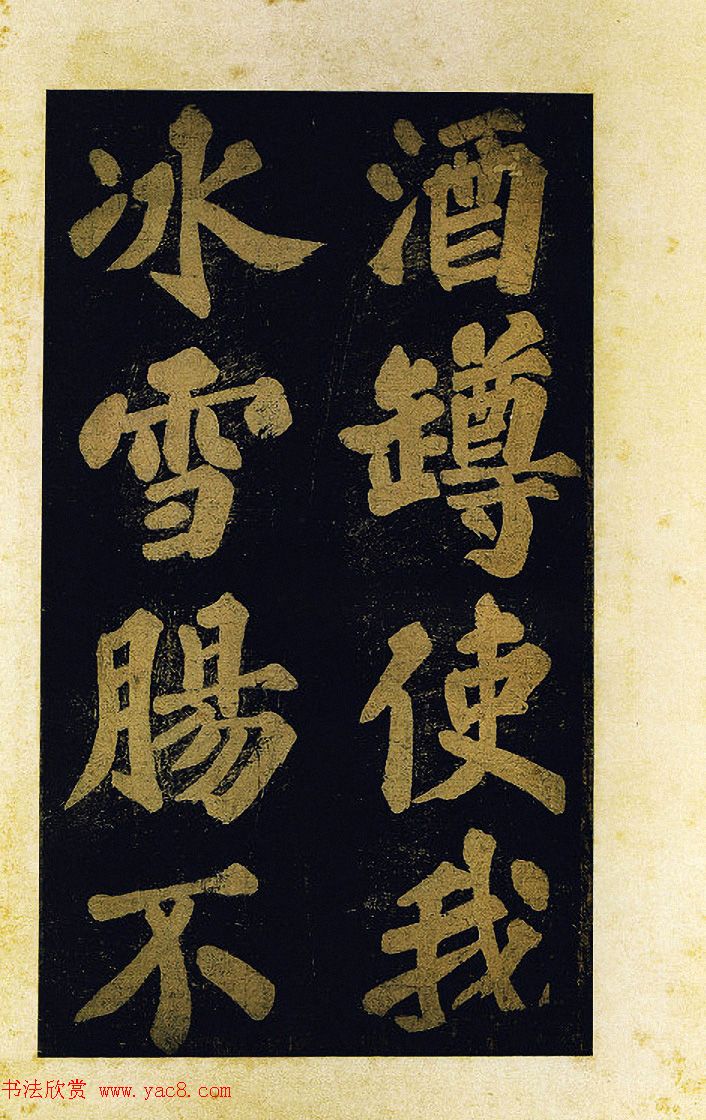 酒罇使我
冰雪腸不
书法欣赏 www.yac8.com